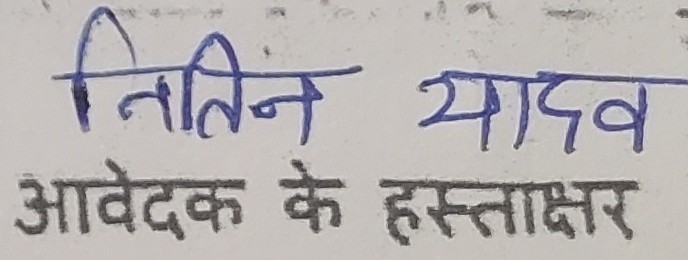 नितिन यादव
आवेदक के हस्ताक्षर